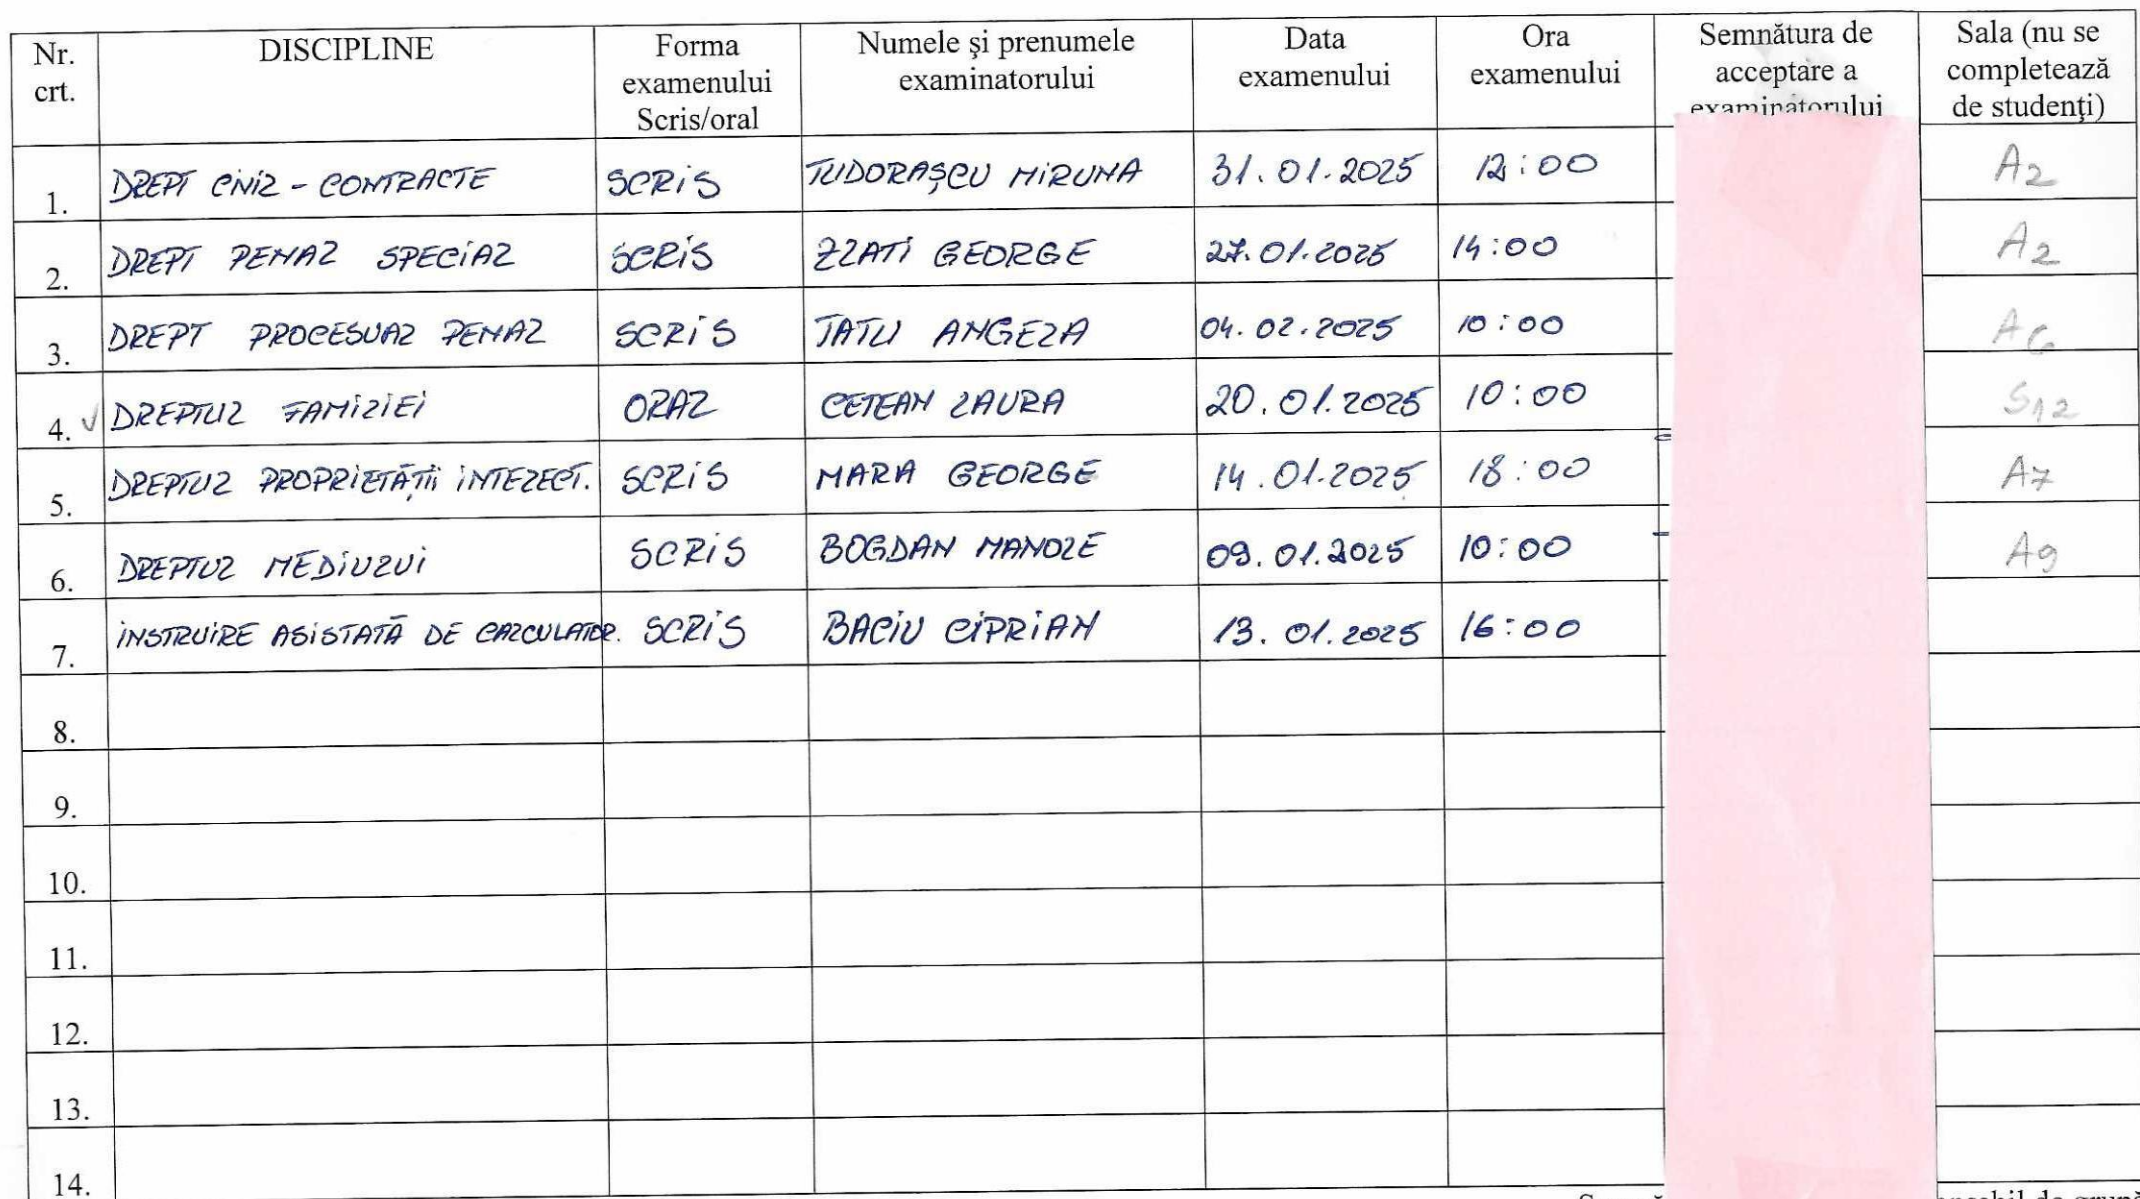 Nr. crt. DISCIPLINE Forma examenului Scris/oral Numele şi prenumele examinatorului Data examenului Ora examenului Semnătura de acceptare a examinatorului Sala (nu se completează de studenţi)
1. DREPT CIVIL - CONTRACTE SCRIS TUDORAŞCU MIRUNA 31.01.2025 12:00 A2
2. DREPT PENAL SPECIAL SCRIS ZLATI GEORGE 27.01.2025 14:00 A2
3. DREPT PROCESUAL PENAL SCRIS TATU ANGELA 04.02.2025 10:00 A6
4. DREPTUL FAMILIEI ORAL CETEAN LAURA 20.01.2025 10:00 S12
5. DREPTUL PROPRIETĂŢII INTELECT. SCRIS MARA GEORGE 14.01.2025 18:00 A7
6. DREPTUL MEDIULUI SCRIS BOGDAN MANOLE 09.01.2025 10:00 A9
7. INSTRUIRE ASISTATĂ DE CALCULATOR. SCRIS BACIU CIPRIAN 13.01.2025 16:00
8.
9.
10.
11.
12.
13.
14.
de grupă